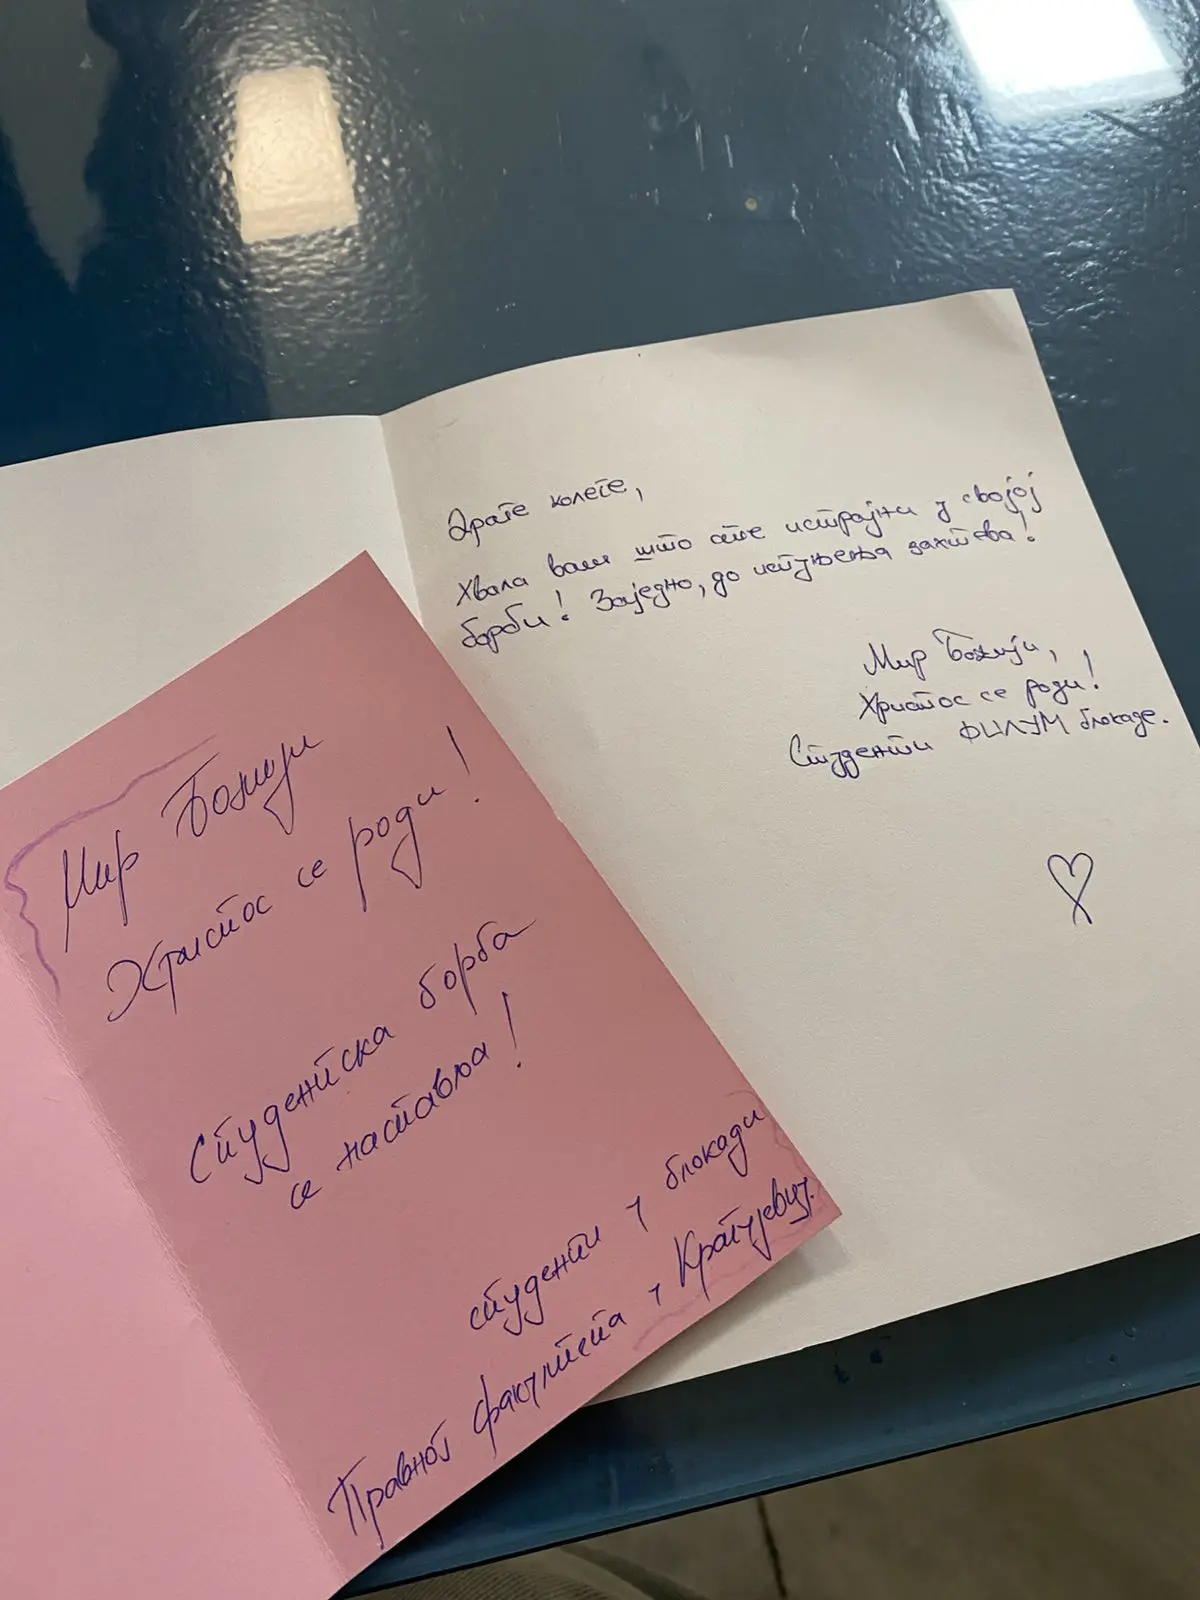 Драге колеге,
Хвала вам што сте истрајни у својој
борби! Заједно, до испуњења захтева!
Мир Божији,
Христос се роди!
Студенти ФИЛУМ блокаде.
Мир Божији
Христос се роди!
Студентска борба
се наставља!
студенти у блокади
Правног факултета у Крагујевцу.